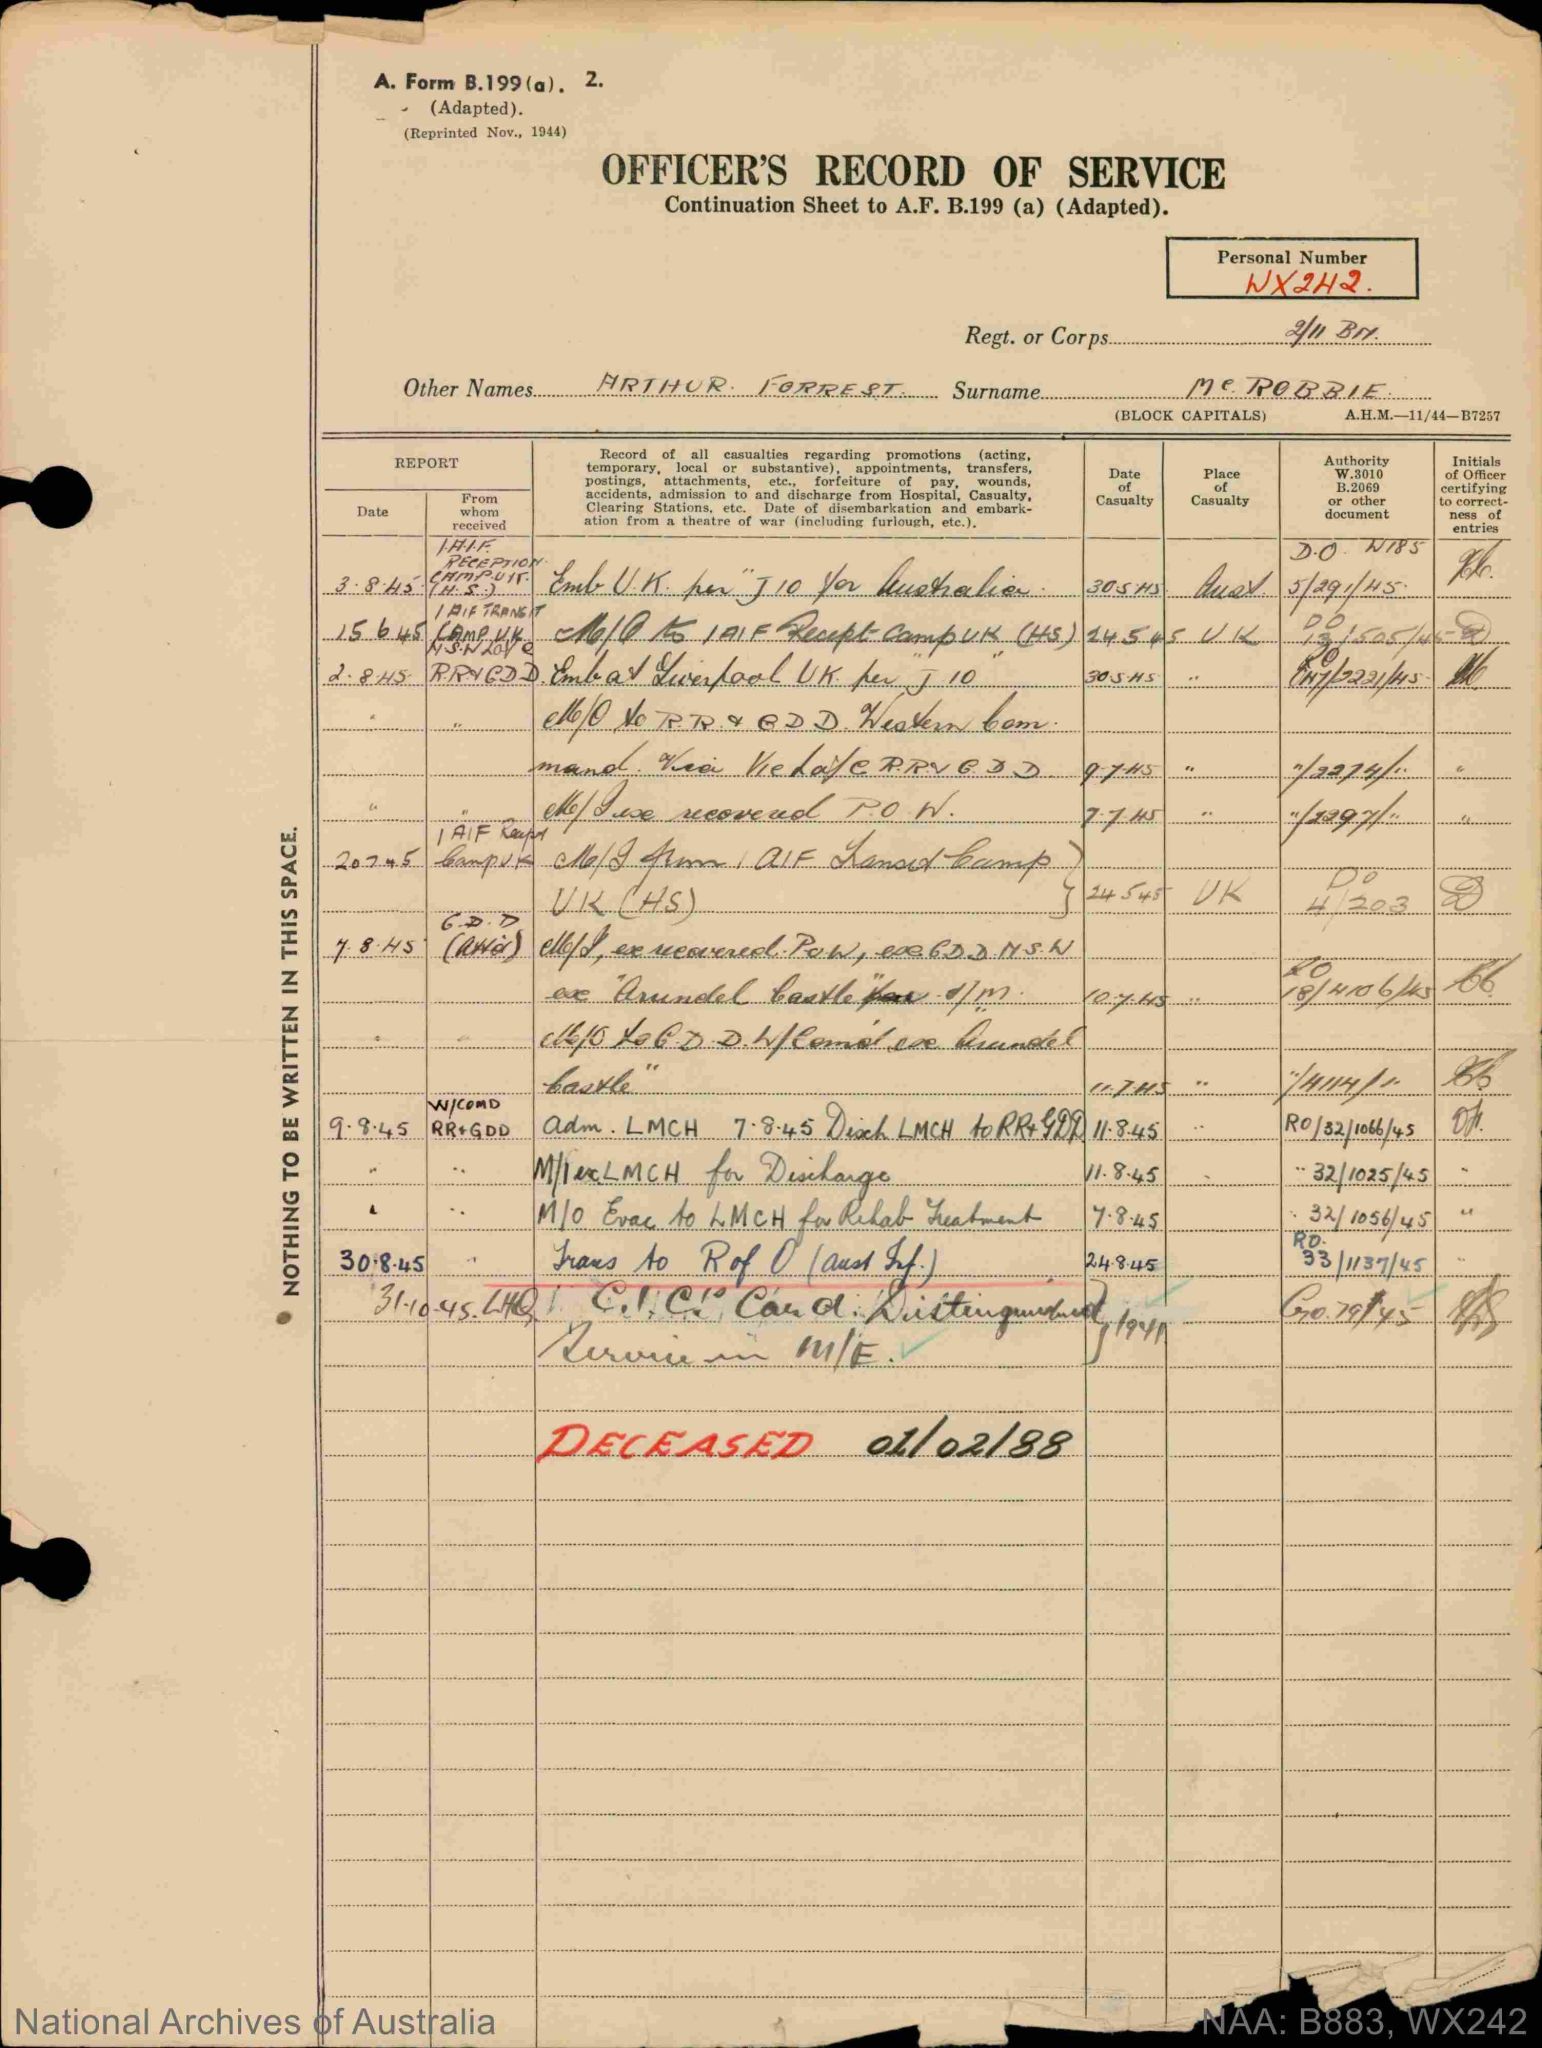 A. Form B.199(a). 2.
(Adapted).
(Reprinted Nov., 1944)
OFFICER'S RECORD OF SERVICE
Continuation Sheet to A.F. B.199 (a) (Adapted).
Personal Number
WX242.
Regt. or Corps 2/11 BN.
Other Names ARTHUR. FORREST. Surname Mc. ROBBIE.
(BLOCK CAPITALS) A.H.M.—11/44—B7257
REPORT
Date
From whom received
Record of all casualties regarding promotions (acting,
temporary, local or substantive), appointments, transfers,
postings, attachments, etc., forfeiture of pay, wounds,
accidents, admission to and discharge from Hospital, Casualty,
Clearing Stations, etc. Date of disembarkation and embark-
ation from a theatre of war (including furlough, etc.).
Date of Casualty
Place of Casualty
Authority W.3010 B.2069 or other document
Initials of Officer certifying to correct-ness of entries
1.A.I.F. RECEPTION D.O. W185
3.8.45 CAMP U.K. (H.S.) Emb U.K. per "J 10 for Australia. 30.5.45 Aust. 5/291/45
1 AIF TRANSIT
15 6 45 CAMP UK M/O to 1 AIF Recept Camp UK (HS) 24 5 45 UK DO 13/505/45
2.8.45 RR&GDD. Emb at Liverpool UK. per "J 10" 30.5.45 " /2221/45
" " M/O to R.R. & G D D. Western Com-
mand. Via Vic La/C R.R.& G.D.D. 9.7.45 " "/2274/" "
" " M/I ex recovered P.O.W. 7.7.45 " "/2297/" "
1 AIF Recept
20 7 45 Camp UK M/I from 1 AIF Transit Camp
UK (HS) 24 5 45 UK DO 4/203
G.D.D
7.8.45 M/I, ex recovered P.O.W, ex G D D. N.S.W
ex "Arundel Castle" d/m. 10.7.45 " RO 18/4106/45
" " M/O to G.D.D. W/Com'd ex Arundel
Castle" 11.7.45 " "/4114/"
W/COMD
9.8.45 RR+GDD Adm. LMCH 7.8.45 Disch LMCH to RR+GDD 11.8.45 " RO/32/1066/45
" " M/I ex LMCH for Discharge 11.8.45 " 32/1025/45 "
" " M/O Evac to LMCH for Rehab Treatment 7.8.45 " 32/1056/45 "
30.8.45 " Trans to R of O (Aust Inf.) 24.8.45 RO. 33/1137/45 "
31.10.45. LHQ. C.I.C's Card: Distinguished 1941 G.O. 79/45
Service in M/E.
DECEASED 01/02/88
NOTHING TO BE WRITTEN IN THIS SPACE.
National Archives of Australia
NAA: B883, WX242